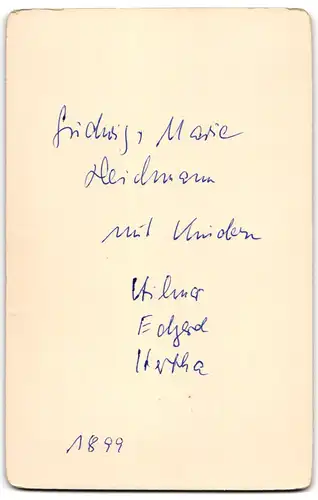 Ludwig, Marie
Deichmann
mit Kindern
Hilmar
Edgard
Hertha
1899